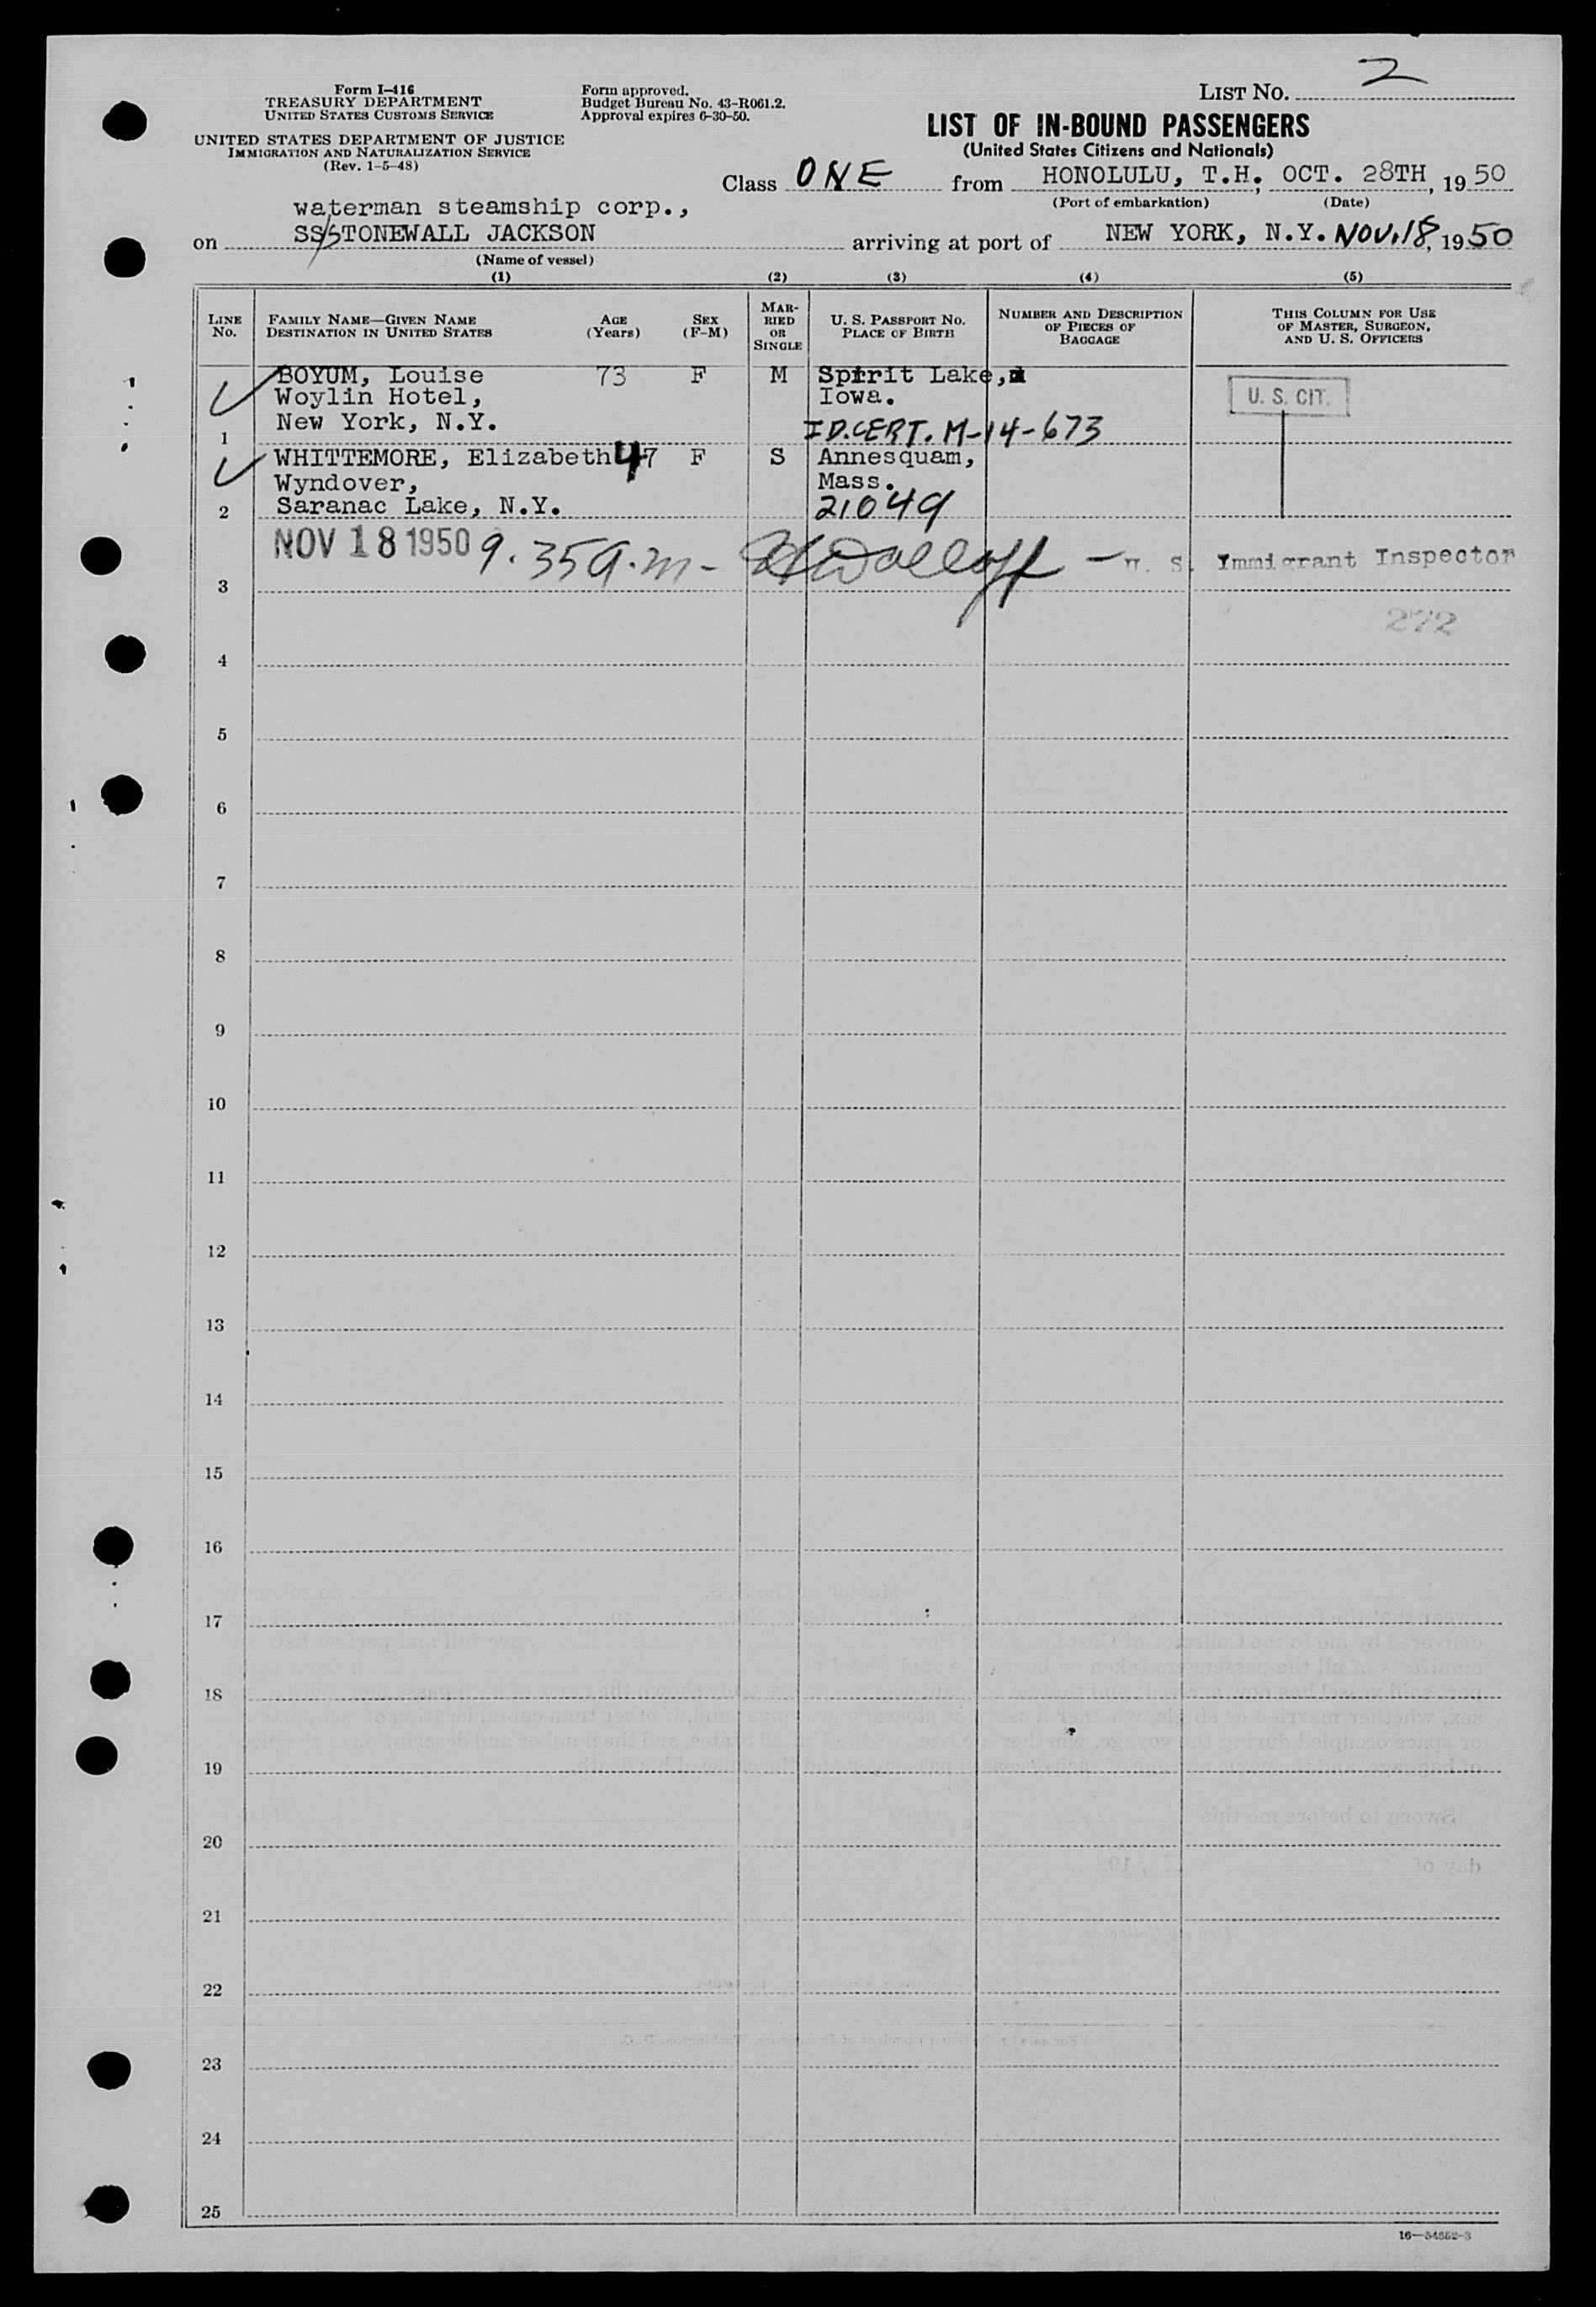 Form I-416
TREASURY DEPARTMENT
UNITED STATES CUSTOMS SERVICE
UNITED STATES DEPARTMENT OF JUSTICE
IMMIGRATION AND NATURALIZATION SERVICE
(Rev. 1-5-48)
Form approved.
Budget Bureau No. 43-R061.2.
Approval expires 6-30-50.
LIST NO. 2
LIST OF IN-BOUND PASSENGERS
(United States Citizens and Nationals)
Class ONE from HONOLULU, T.H., OCT. 28TH, 1950
(Port of embarkation) (Date)
waterman steamship corp.,
on SS/STONEWALL JACKSON arriving at port of NEW YORK, N.Y. NOV. 18, 1950
(Name of vessel)
(1) (2) (3) (4) (5)
LINE NO.
FAMILY NAME—GIVEN NAME
DESTINATION IN UNITED STATES
AGE (Years)
SEX (F-M)
MARRIED OR SINGLE
U. S. PASSPORT NO.
PLACE OF BIRTH
NUMBER AND DESCRIPTION OF PIECES OF BAGGAGE
THIS COLUMN FOR USE OF MASTER, SURGEON, AND U. S. OFFICERS
BOYUM, Louise 73 F M Spirit Lake,
Woylin Hotel, Iowa. U. S. CIT.
New York, N.Y. ID.CERT. M-14-673
1
WHITTEMORE, Elizabeth 47 F S Annesquam,
Wyndover, Mass.
2 Saranac Lake, N.Y. 21049
NOV 18 1950 9.35 a.m- — U. S. Immigrant Inspector
3
272
4
5
6
7
8
9
10
11
12
13
14
15
16
17
18
19
20
21
22
23
24
25